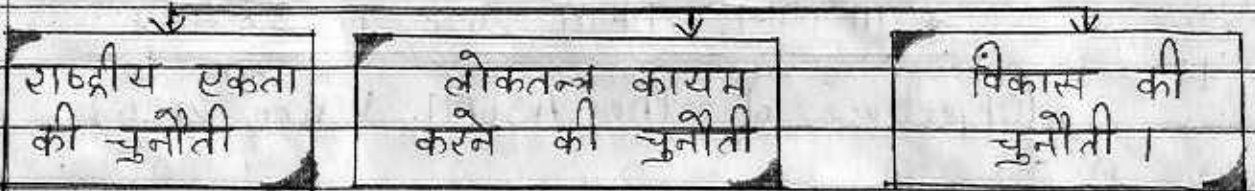 राष्ट्रीय एकता
की चुनौती
लोकतन्त्र कायम
करने की चुनौती
विकास की
चुनौती ।